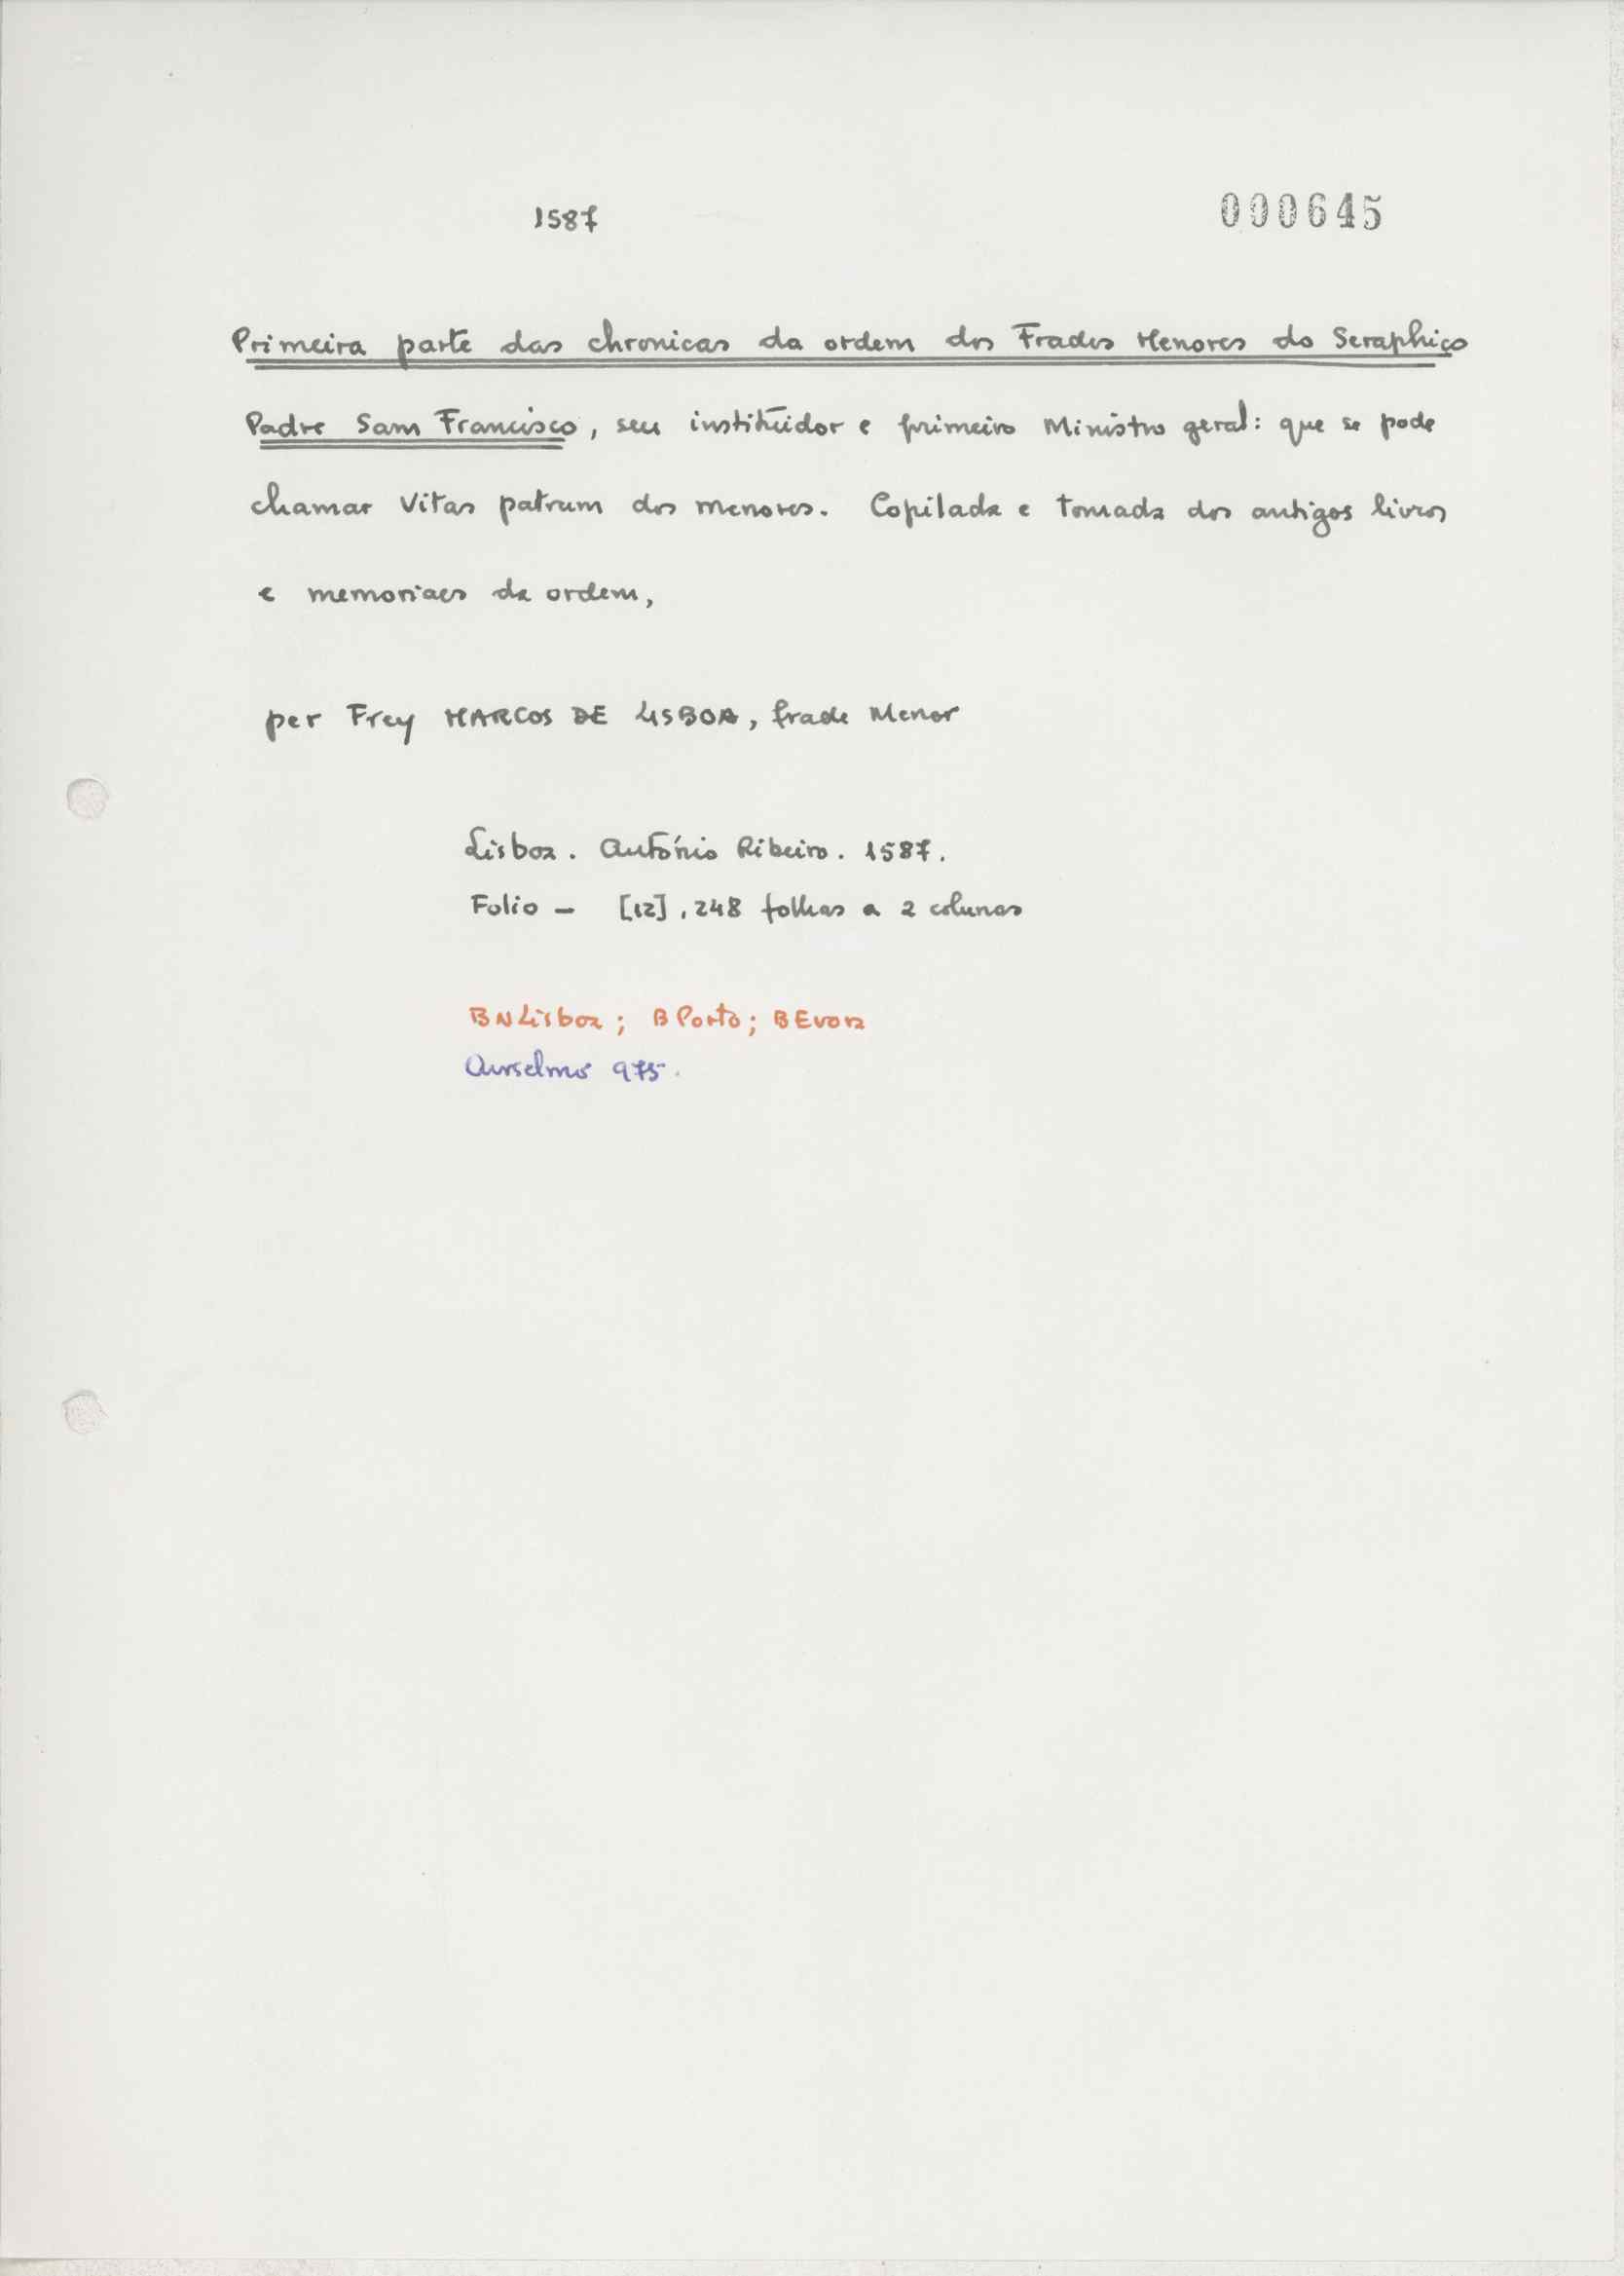 1587
000645
Primeira parte das chronicas da ordem dos Frades Menores do Seraphico
Padre Sam Francisco, seu instituidor e primeiro Ministro geral: que se pode
chamar Vitas patrum dos menores. Copilada e tomada dos antigos livros
e memoriaes da ordem,
per Frey MARCOS DE LISBOA, frade Menor
Lisboa. António Ribeiro. 1587.
Folio - [12], 248 folhas a 2 colunas
BNLisboa; BPorto; BEvora
Anselmo 975.